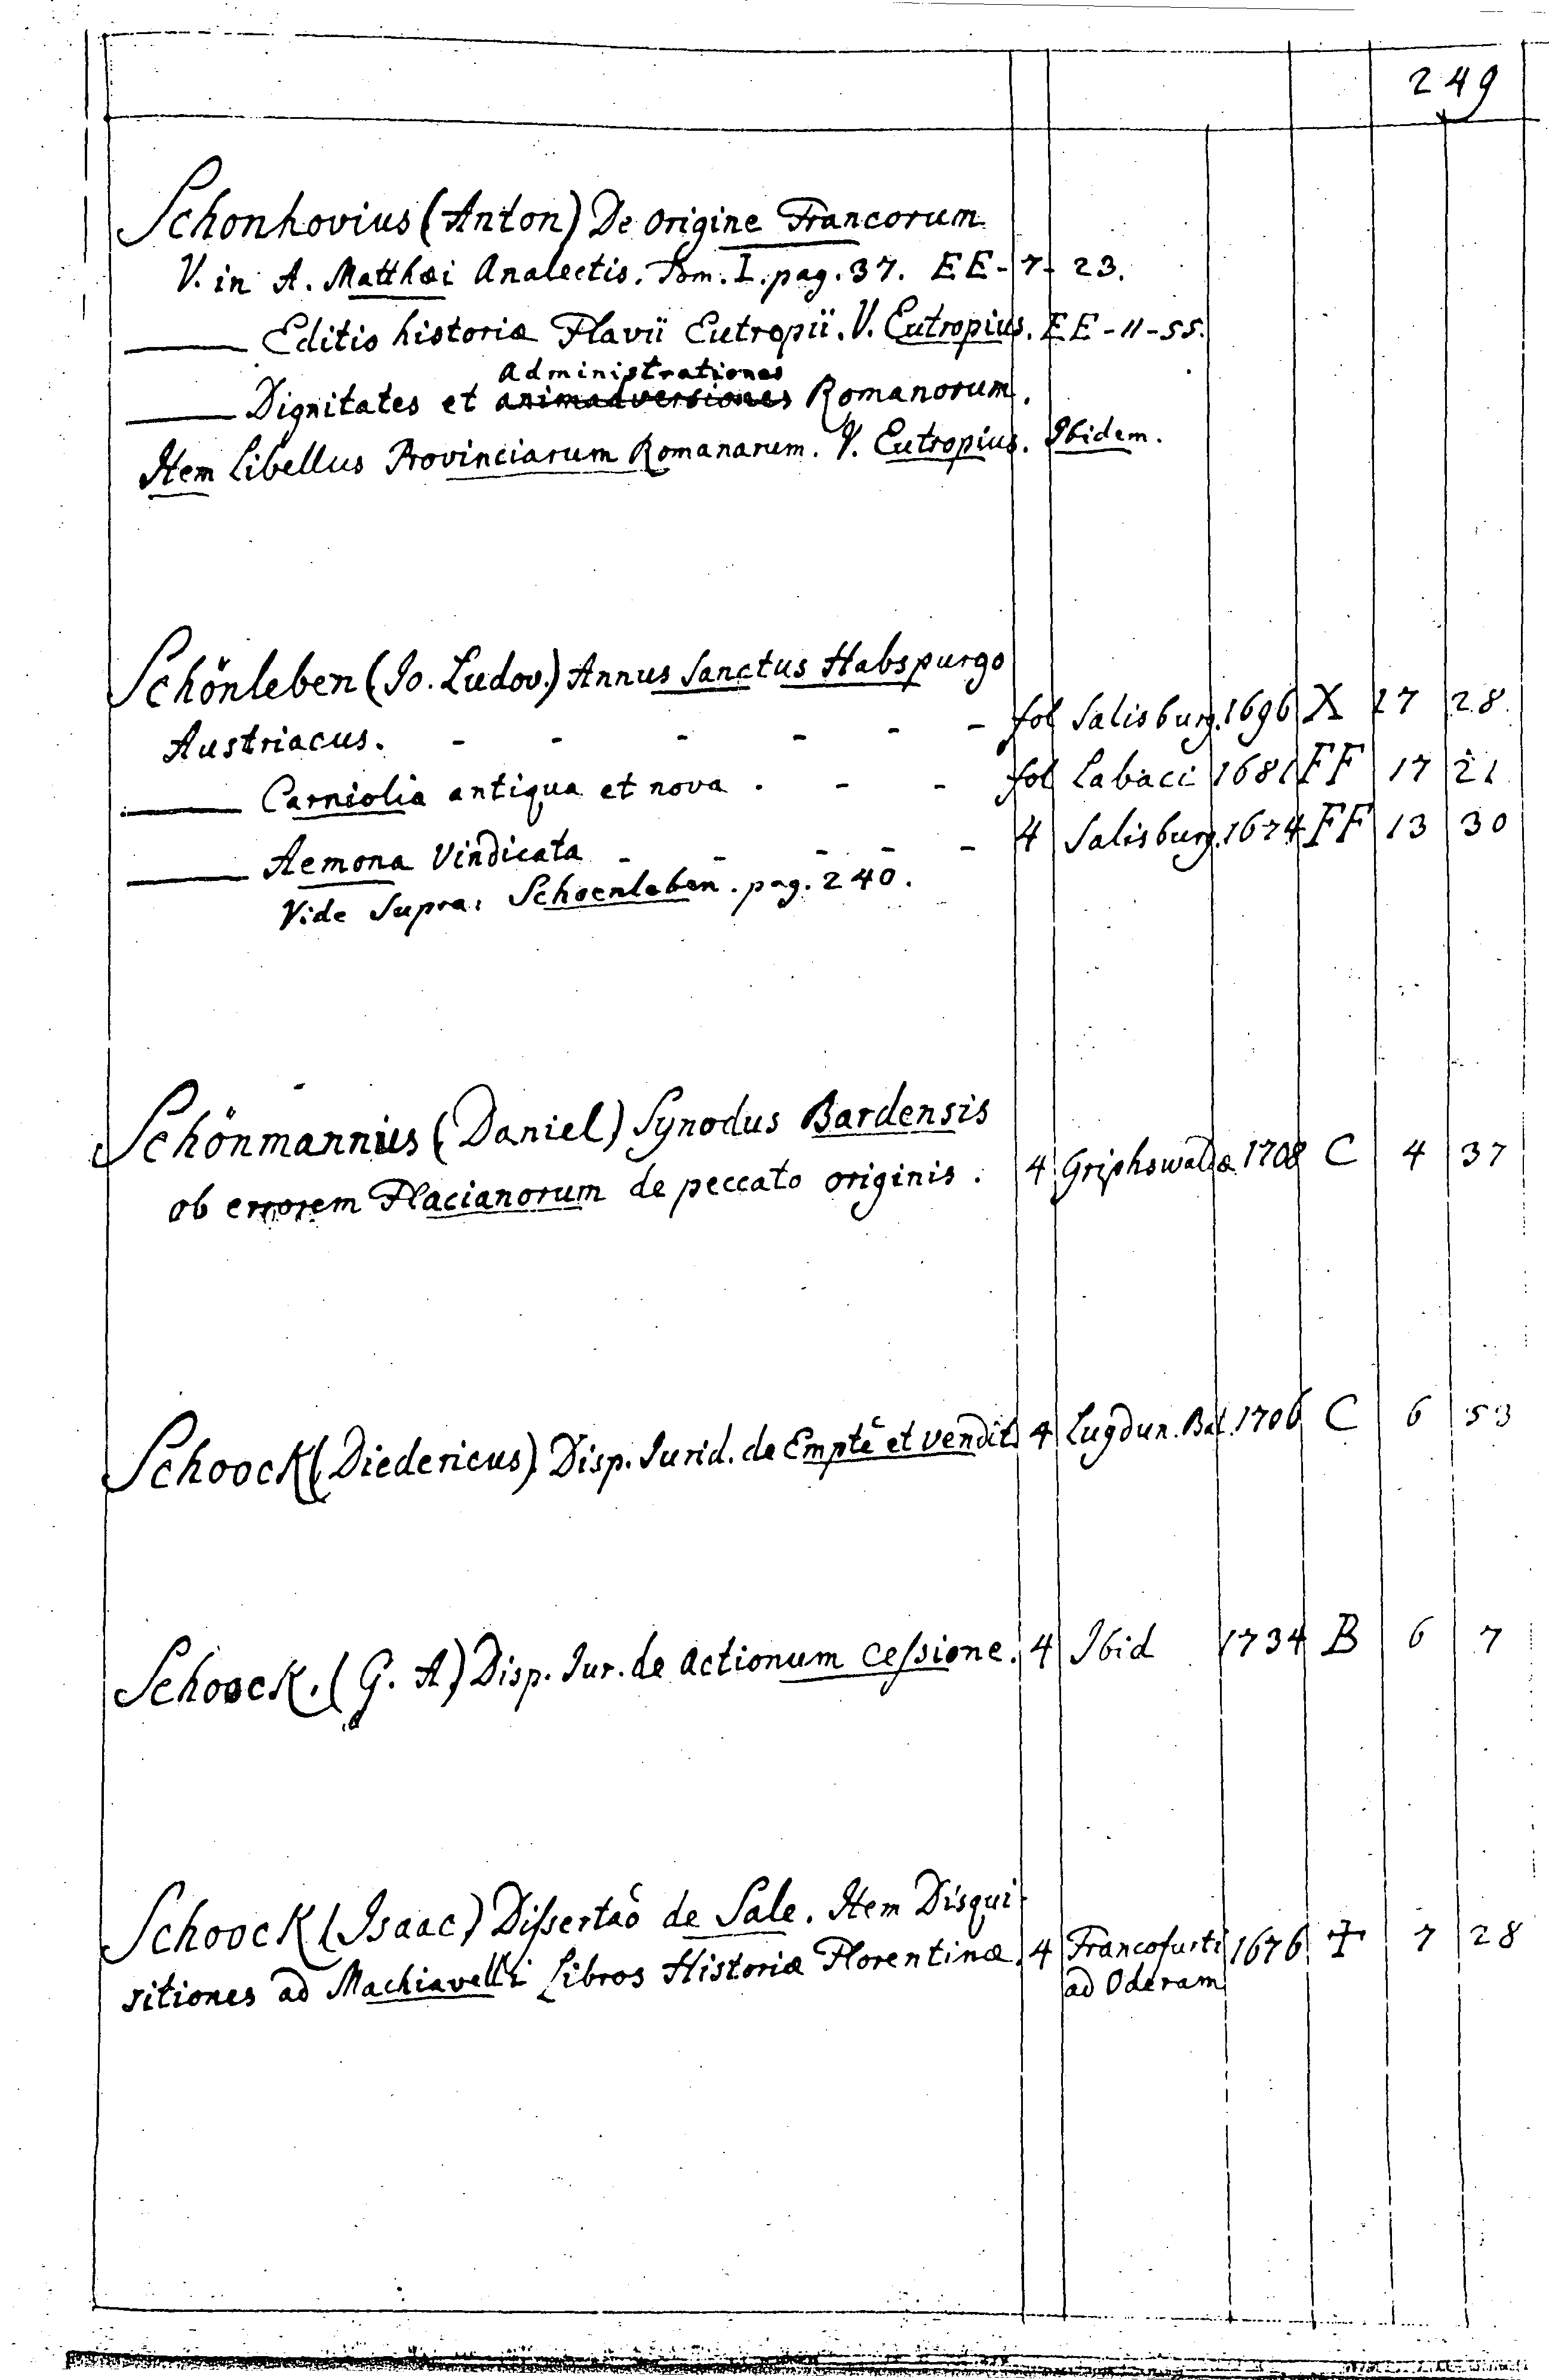 249
Schonhovius (Anton) De origine Francorum
V. in A. Matthæi Analectis. Tom. I. pag. 37. EE-7-23.
Editio historiæ Flavii Eutropii. V. Eutropius. EE-11-55.
Administrationes
Dignitates et animadversiones Romanorum.
Item Libellus Provinciarum Romanarum. V. Eutropius. Ibidem.
Schönleben (Jo. Ludov.) Annus Sanctus Habspurgo
Austriacus. - - - - - - fol Salisburg. 1696 X 17 28
Carniolia antiqua et nova . - - fol Labaci 1681 FF 17 21
Aemona Vindicata - - - - - 4 Salisburg. 1674 FF 13 30
Vide Supra: Schoenleben. pag. 240.
Schönmannius (Daniel) Synodus Bardensis
ob errorem Flacianorum de peccato originis. 4 Griphswaldæ 1708 C 4 37
Schoock (Diedericus) Disp. Jurid. de Emptē et vendit. 4 Lugdun. Bat. 1706 C 6 53
Schoock. (G. A) Disp. Jur. de actionum ceſsione. 4 Ibid 1734 B 6 7
Schoock (Isaac) Diſsertaō de Sale. Item Disqui-
sitiones ad Machiavelli Libros Historiæ Florentinæ. 4 Francofurti 1676 T 7 28
ad Oderam